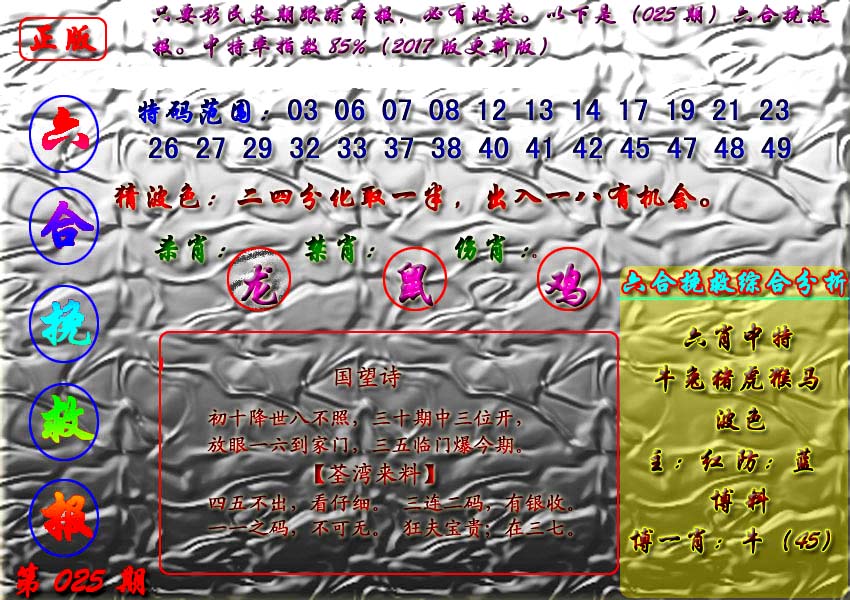 正版
只要彩民长期跟踪本报，必有收获。以下是（025期）六合挽救
报。中特率指数85%（2017版更新版）
六合挽救报
第025期
特码范围：03 06 07 08 12 13 14 17 19 21 23
26 27 29 32 33 37 38 40 41 42 45 47 48 49
猜波色：二四分化取一半，出入一八有机会。
杀肖：龙 禁肖：鼠 伤肖：鸡。
国望诗
初十降世八不照，三十期中三位开，
放眼一六到家门，三五临门爆今期。
【荃湾来料】
四五不出，看仔细。 三连二码，有银收。
一一之码，不可无。 狂夫宝贵；在三七。
六合挽救综合分析
六肖中特
牛兔猪虎猴马
波色
主：红防：蓝
博料
博一肖：牛（45）